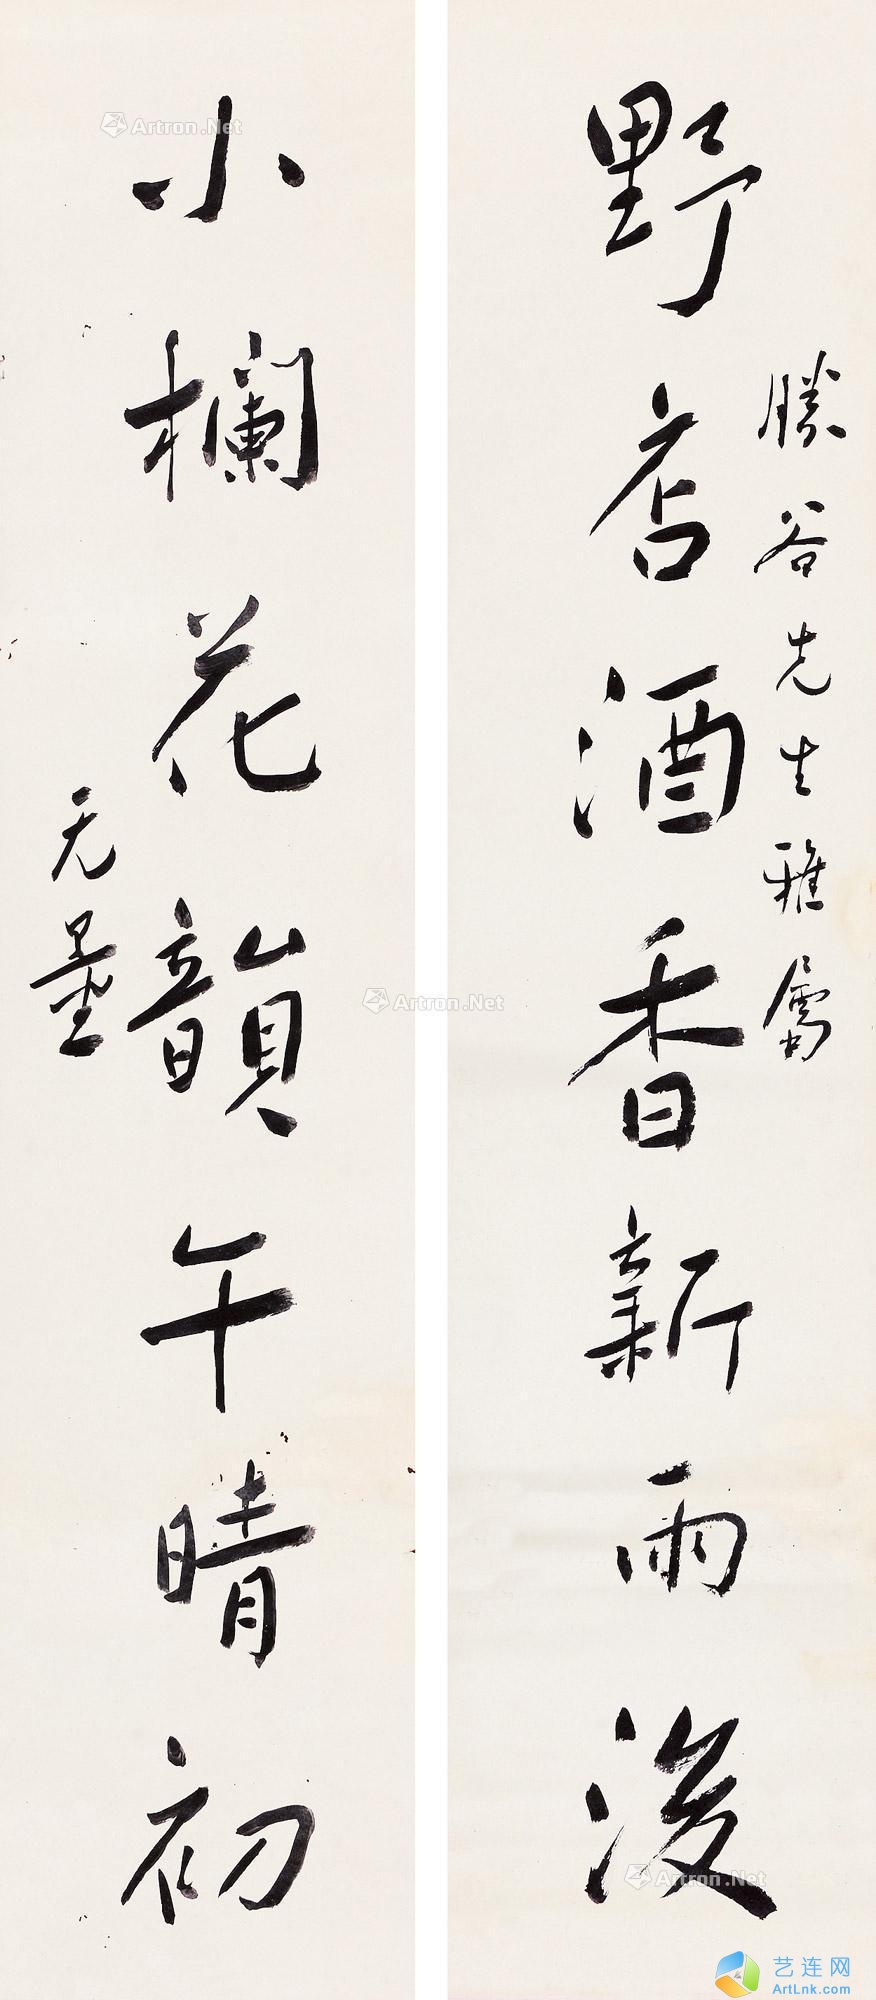 勝谷先生雅屬
野店酒香新雨後
小欄花韻午晴初
无量
Artron.Net
Artron.Net
Artron.Net
艺连网
ArtLnk.com